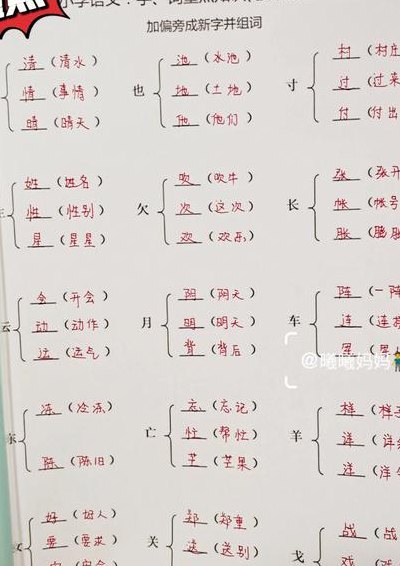 加偏旁成新字并组词
清（清水）
情（事情）
晴（晴天）
也
池（水池）
地（土地）
他（他们）
寸
村（村庄
过（过来
付（付出
姓（姓名）
性（性别）
星（星星）
欠
吹（吹牛）
次（这次）
欢（欢乐）
长
张（张开
帐（帐号
胀（膨胀
云
会（开会）
动（动作）
运（运气）
月
阴（阴天）
明（明天）
背（背后）
车
阵（一阵
连（连接
@曦曦妈妈
东
冻（冷冻）
陈（陈旧）
亡
忘（忘记）
忙（帮忙）
芒（芒果）
羊
样（样子
详（详细
洋（洋
女
好（好人）
要（要求）
关
郑（郑重）
送（送别）
戈
战（战
戏（戏